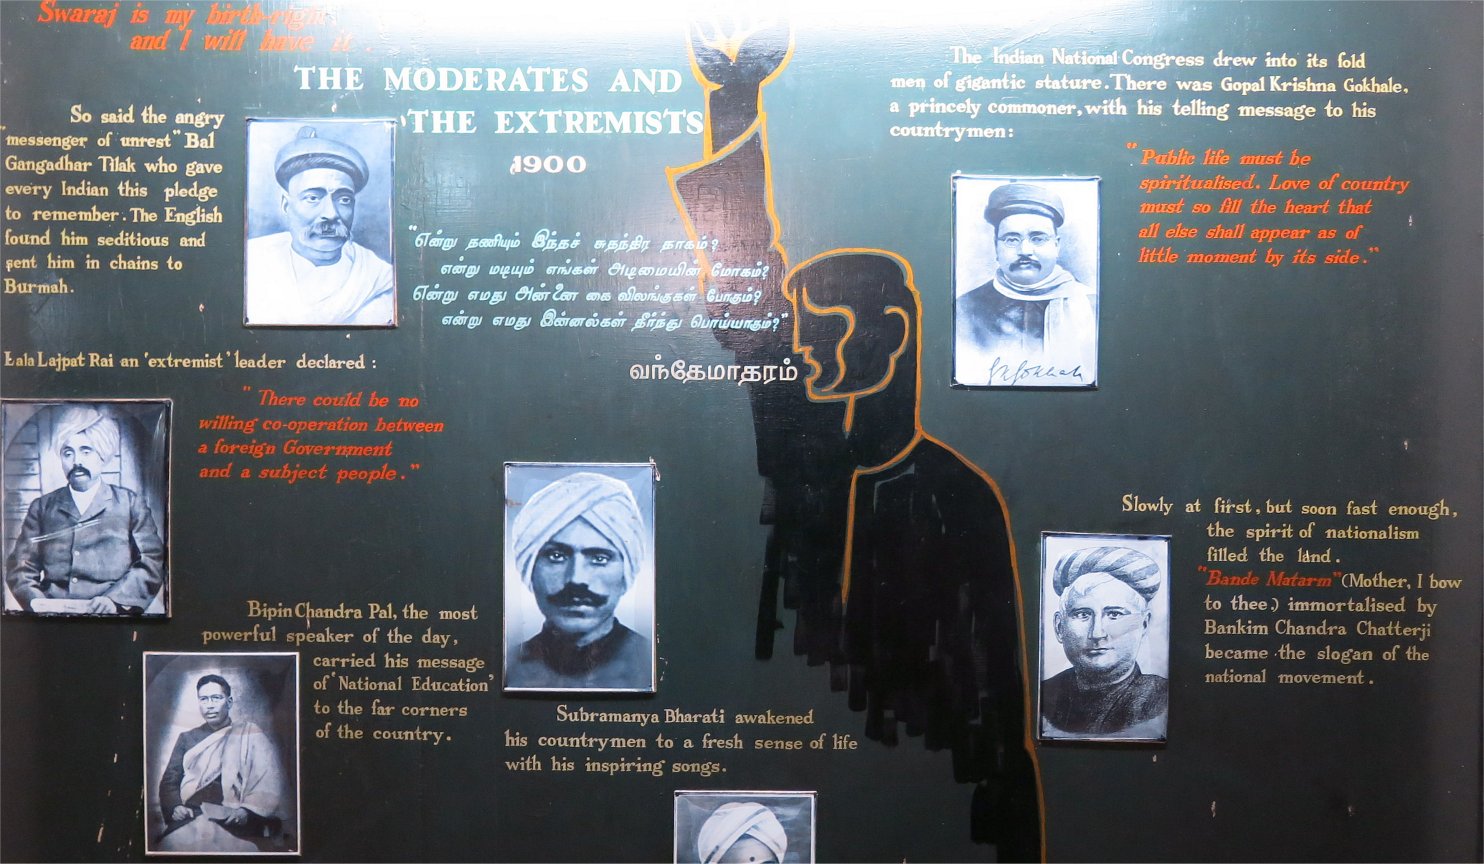 Swaraj is my birth-right
and I will have it.
THE MODERATES AND
THE EXTREMISTS
1900
So said the angry
"messenger of unrest" Bal
Gangadhar Tilak who gave
every Indian this pledge
to remember. The English
found him seditious and
sent him in chains to
Burmah.
"என்று தணியும் இந்தச் சுதந்திர தாகம்?
என்று மடியும் எங்கள் அடிமையின் மோகம்?
என்று எமது அன்னை கை விலங்குகள் போகும்?
என்று எமது இன்னல்கள் தீர்ந்து பொய்யாகும்?"
வந்தேமாதரம்
The Indian National Congress drew into its fold
men of gigantic stature. There was Gopal Krishna Gokhale,
a princely commoner, with his telling message to his
countrymen:
"Public life must be
spiritualised. Love of country
must so fill the heart that
all else shall appear as of
little moment by its side."
GKGokhale
Lala Lajpat Rai an 'extremist' leader declared:
"There could be no
willing co-operation between
a foreign Government
and a subject people."
Bipin Chandra Pal, the most
powerful speaker of the day,
carried his message
of 'National Education'
to the far corners
of the country.
Subramanya Bharati awakened
his countrymen to a fresh sense of life
with his inspiring songs.
Slowly at first, but soon fast enough,
the spirit of nationalism
filled the land.
"Bande Matarm" (Mother, I bow
to thee.) immortalised by
Bankim Chandra Chatterji
became the slogan of the
national movement.